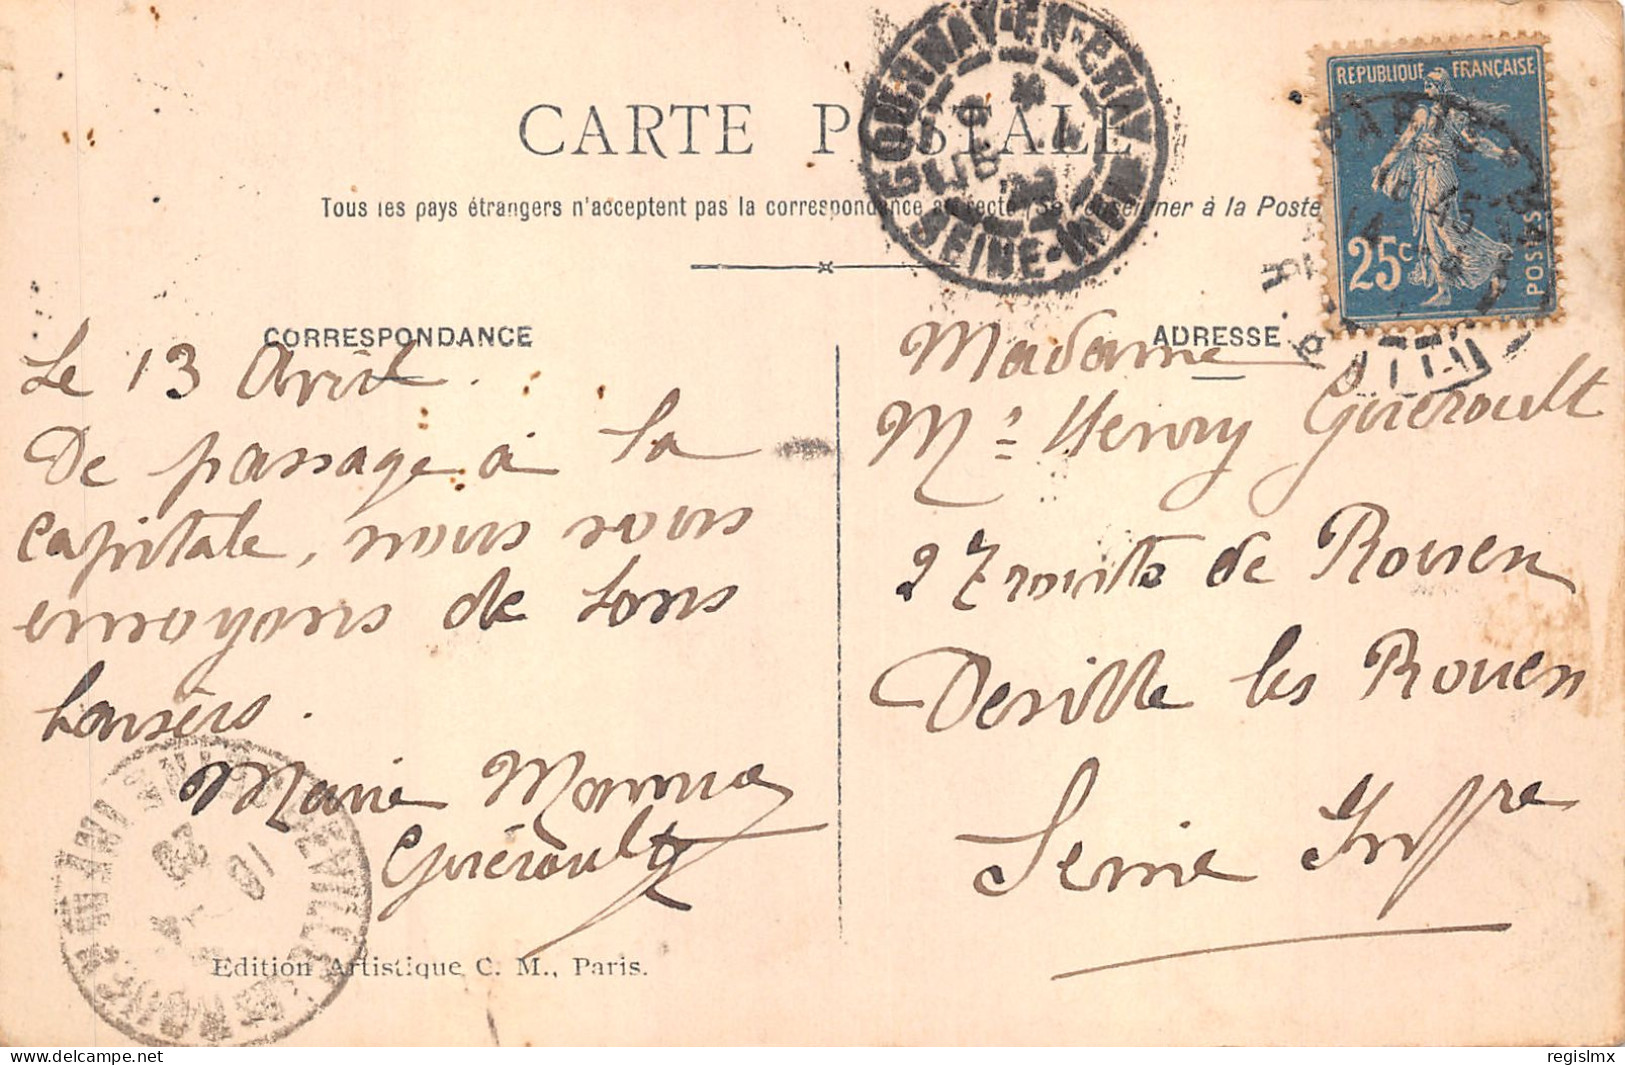 CARTE POSTALE
Tous les pays étrangers n'acceptent pas la correspondance au recto, Se renseigner à la Poste
CORRESPONDANCE
Le 13 Avril.
De passage à la
capitale, nous vous
envoyons de bons
baisers.
Marie
Guéroult
Edition Artistique C. M., Paris.
ADRESSE
Madame
Mr Henry Guéroult
27 route de Rouen
Deville les Rouen
Seine Infre
REPUBLIQUE FRANÇAISE
25c
POSTES
GOURNAY-EN-BRAY
SEINE-INFRE
DEVILLE-LES-ROUEN
SEINE INFRE
regislmx
delcampe.net